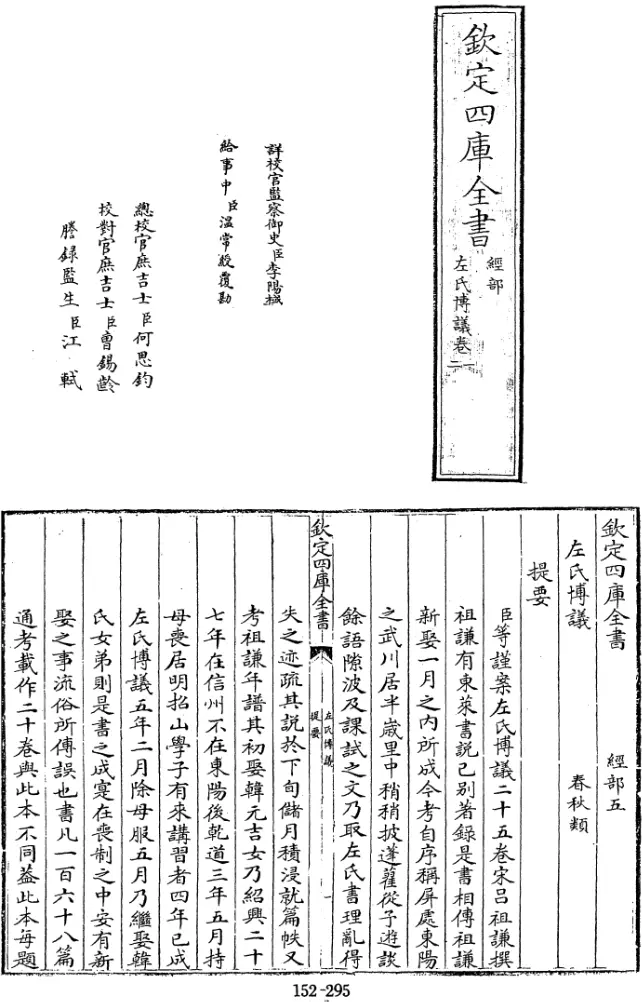 欽定四庫全書
經部
左氏博議卷一
二
詳校官監察御史臣李陽棫
給事中臣溫常綬覆勘
總校官庶吉士臣何思鈞
校對官庶吉士臣曹錫齡
謄錄監生臣江軾
欽定四庫全書　經部五
左氏博議　春秋類
提要
臣等謹案左氏博議二十五卷宋呂祖謙撰
祖謙有東萊書說已別著錄是書相傳祖謙
新娶一月之內所成今考自序稱屏處東陽
之武川居半歲里中稍稍披蓬藋從予遊談
餘語隙波及課試之文乃取左氏書理亂得
欽定四庫全書
左氏博議
提要
一
失之迹疏其說於下旬儲月積浸就篇帙又
考祖謙年譜其初娶韓元吉女乃紹興二十
七年在信州不在東陽後乾道三年五月持
母喪居明招山學子有來講習者四年已成
左氏博議五年二月除母服五月乃繼娶韓
氏女弟則是書之成寔在喪制之中安有新
娶之事流俗所傳誤也書凡一百六十八篇
通考載作二十卷與此本不同蓋此本每題
152-295